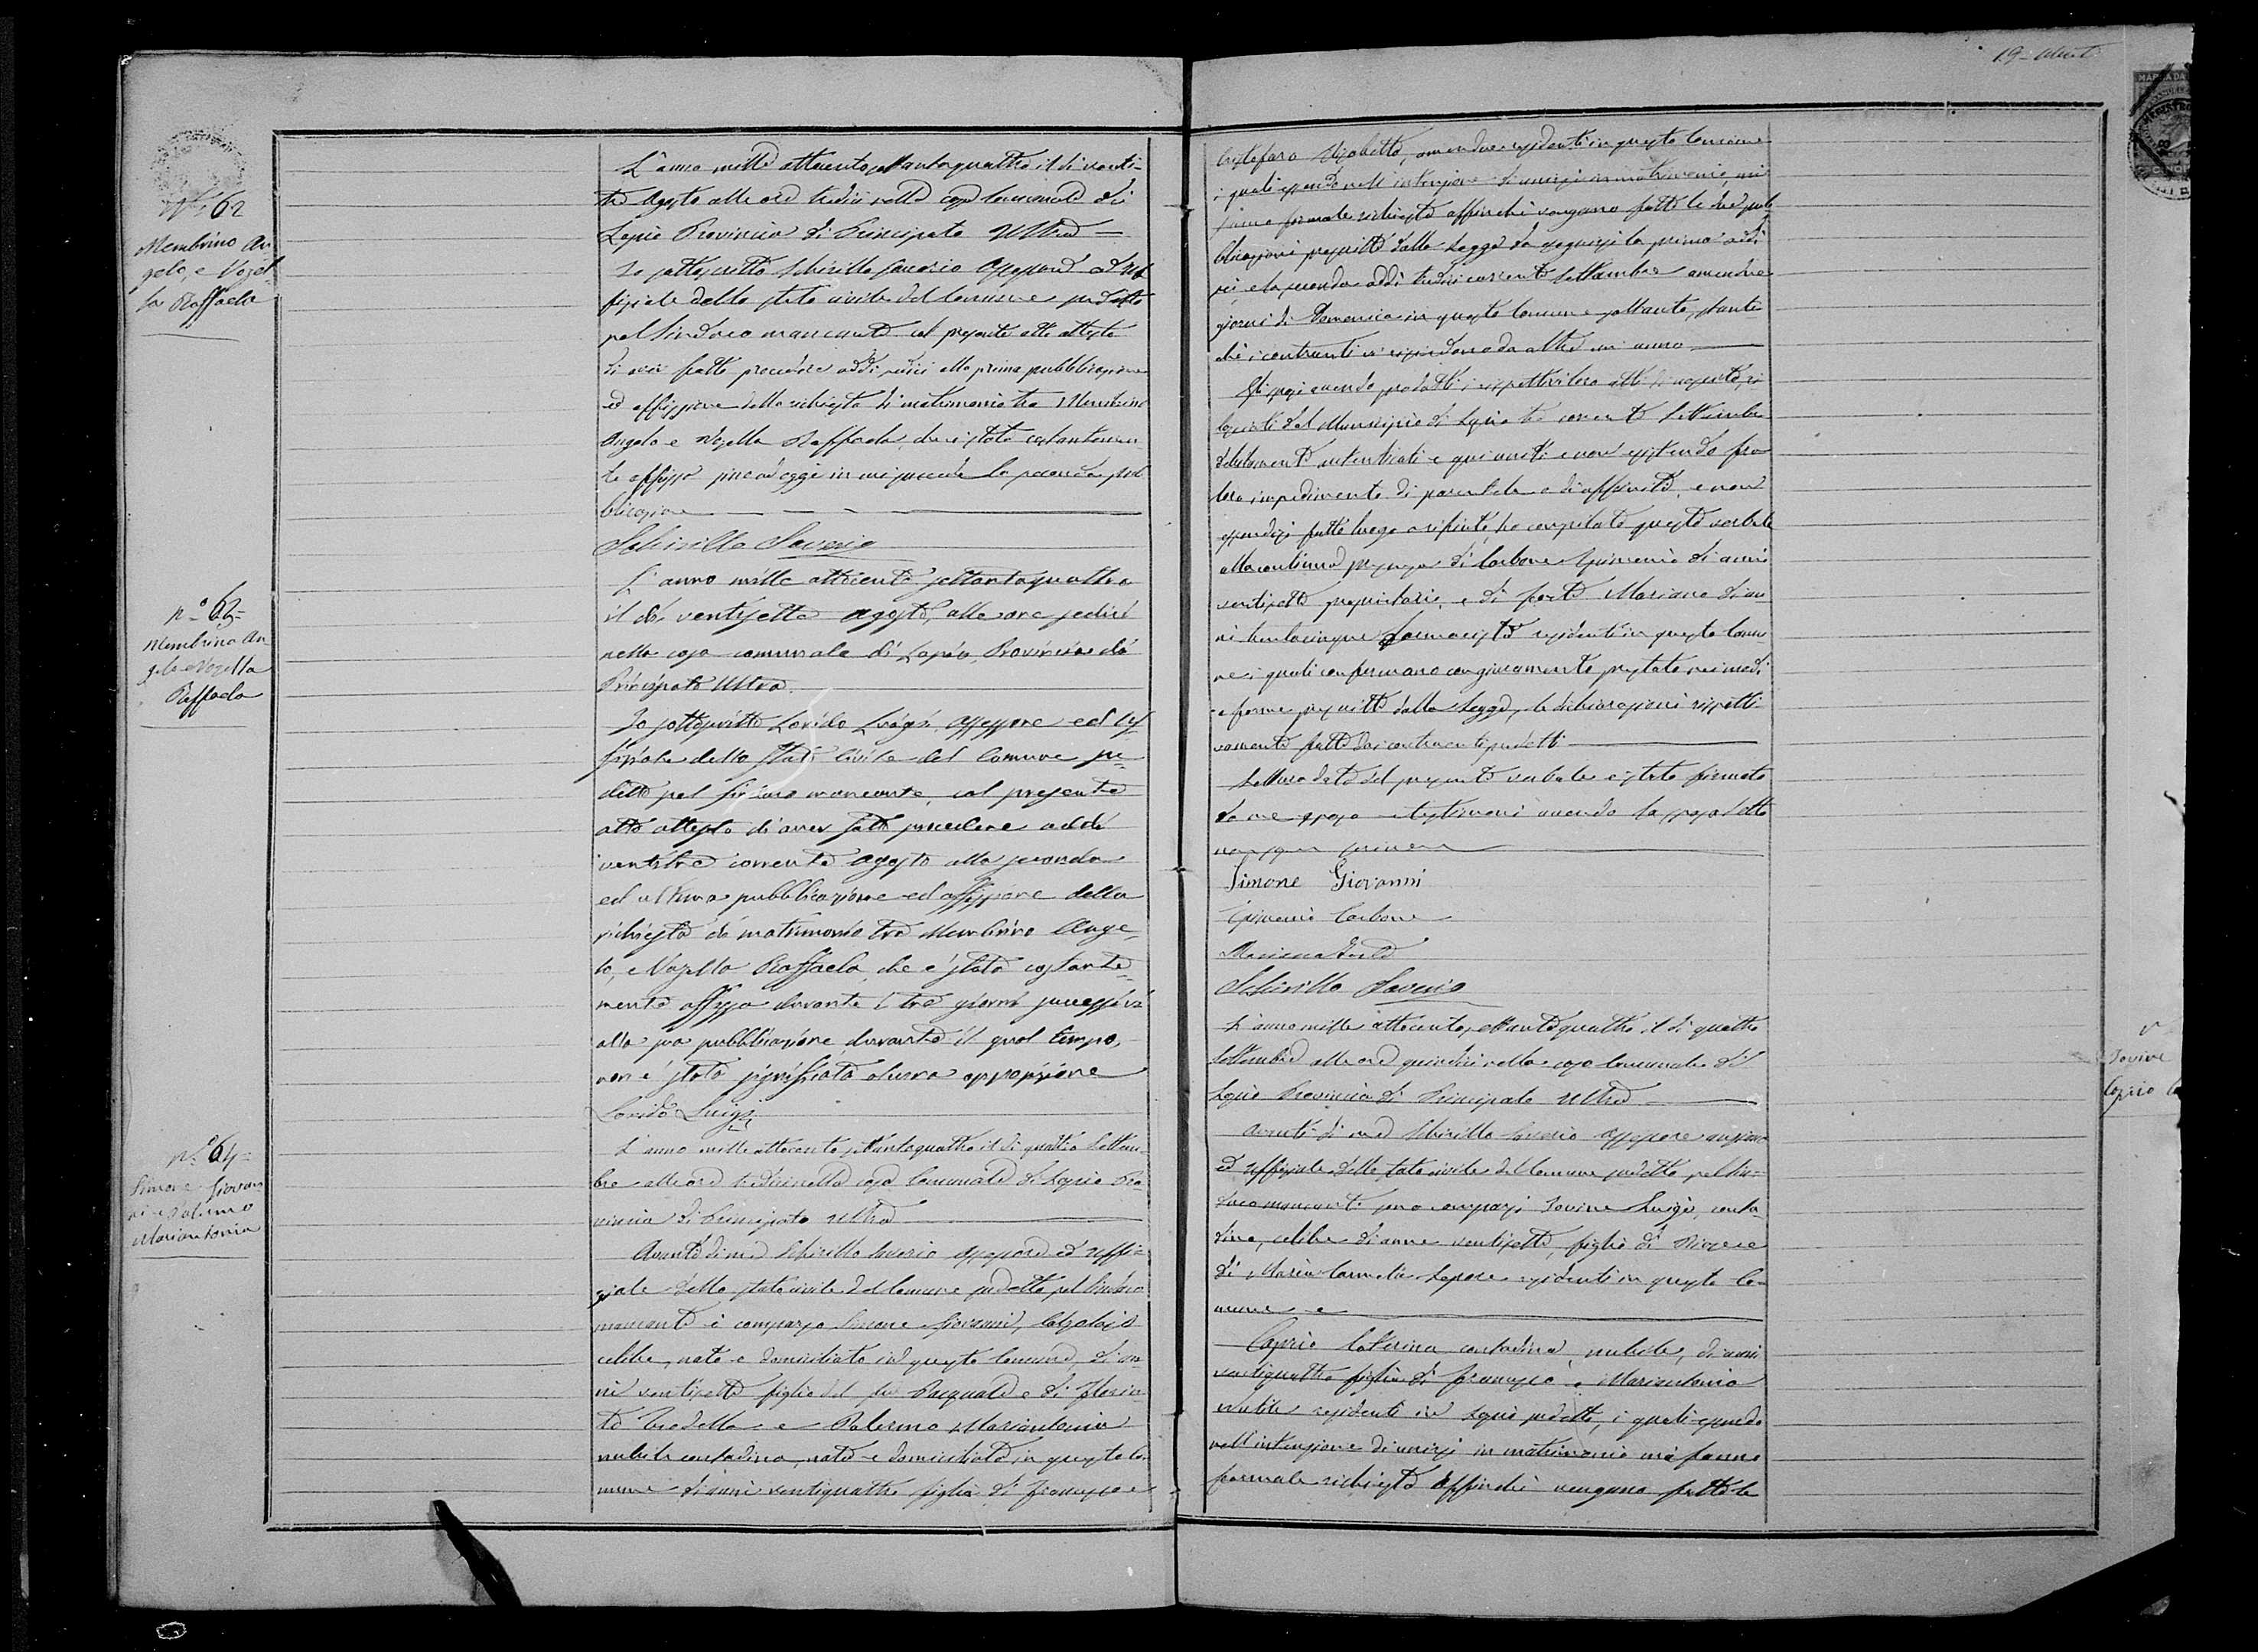 Nº 62
Membrino An
gelo, e Vozel
la Raffaela
L'anno mille ottocentosettantaquattro il dì venti-
tre Agosto alle ore tredici nella casa comunale di
Lapio Provincia di Principato Ultra
Io sottoscritto Schirillo Saverio Assessore ed Uf
fiziale dello stato civile del Comune sudetto
pel Sindaco mancante col presente atto attesto
di aver fatto procedere addì sedici alla prima pubblicazione
ed affissione della richiesta di matrimonio tra Membrino
Angelo e Vozella Raffaela, che è stata costantemen
te affissa sino ad oggi in cui succede la seconda pub
blicazione
Schirillo Saverio
nº 63=
Membrino An
gelo e Vozella
Raffaela
L'anno mille ottocento settantaquattro
il dì ventisette Agosto, alle ore sedici
nella casa comunale di Lapio, Provincia di
Principato Ultra.
Io sottoscritto Lorido Luigi, Assessore ed Uf
fiziale dello Stato Civile del Comune su-
detto pel Sindaco mancante, col presente
atto attesto di aver fatto procedere addì
ventitre corrente Agosto alla seconda
ed ultima pubblicazione ed affissione della
richiesta di matrimonio tra Membrino Ange-
lo, e Vozella Raffaela, che è stata costante-
mente affissa durante i tre giorni successivi
alla sua pubblicazione, durante il qual tempo,
non è stata significata alcuna opposizione
Lorido Luigi
nº 64=
Simone Giovan
ni e Palermo
Mariantonia
L'anno mille ottocento settantaquattro il dì quattro Settem-
bre alle ore tredici nella casa Comunale di Lapio Pro-
vincia di Principato Ultra
Avanti di me Schirillo Saverio Assessore ed Uffi-
ziale dello stato civile del Comune sudetto pel Sindaco
mancante è comparso Simone Giovanni, Calzolajo
celibe, nato e domiciliato in questo Comune, di an-
ni ventisette figlio del fu Pasquale e di
e Palermo Mariantonia
nubile contadina, nata e domiciliata in questo Co-
mune di anni ventiquattro figlia di Francesco e
19
Cristofaro Elisabetta, amendue residenti in questo Comune
i quali essendo nell'intenzione di unirsi in matrimonio mi
fanno formale richiesta affinchè vengano fatte le due pub
blicazioni prescritte dalla Legge da eseguirsi la prima addì
sei e la seconda addì tredici corrente Settembre amendue
giorni di Domenica in questo Comune soltanto, stante
chè i contraenti vi risiedono da oltre un anno
Gli sposi avendo prodotti i rispettivi loro atti di nascita, ri
lasciati dal Municipio di Lapio tre corrente Settembre
debitamente autenticati e qui uniti e non esistendo fra
loro impedimento di parentela o di affinità, e non
essendosi fatto luogo a rifiuto, ho compilato questo verbale
alla continua presenza di Carbone Epimenio di anni
ventisette proprietario, e di Forte Mariano di an
ni trentacinque Farmacista residenti in questo Comu
ne, i quali confermano con giuramento prestato nei modi
e forme prescritte dalla Legge, le dichiarazioni rispetti
vamente fatte dai contraenti sudetti
Letta e data del presente verbale è stata firmata
da me sposo e testimoni avendo la sposa detto
non saper scrivere
Simone Giovanni
Epimenio Carbone
Mariano Forte
Schirillo Saverio
L'anno mille ottocento settantaquattro il dì quattro
Settembre alle ore quindici nella casa Comunale di
Lapio Provincia di Principato Ultra
Avanti di me Schirillo Saverio Assessore anziano
ed Uffiziale dello stato civile del Comune sudetto pel Sin-
daco mancante sono comparsi Iovine Luigi, conta-
dino, celibe di anni ventisette, figlio di
di Maria Carmela Lepore residenti in questo Co-
mune e
Caprio Catterina contadina, nubile, di anni
ventiquattro figlia di Francesco e Mariantonia
residenti in Lapio sudetto, i quali essendo
nell'intenzione di unirsi in matrimonio mi fanno
formale richiesta affinchè vengano fatte le
Iovine
Caprio